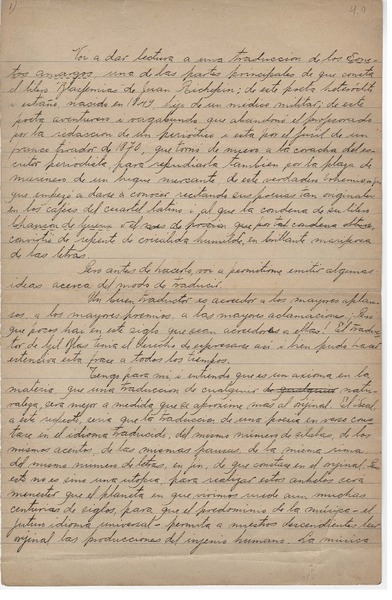 1)
Voy a dar lectura a una traduccion de los Son-
tos amargos una de las partes principales de que consta
el libro Blasfemias de Jean Richepin; de este poeta heteróclito
i estraño, nacido en 1849 hijo de un médico militar; de este
poeta aventurero i vagabundo que abandonó el profesorado
por la redaccion de un periódico, i esta por el fusil de un
franco tirador de 1870, que tornó de nuevo a la
critor periodista, para repudiarla tambien por la plaza de
marinero de un buque mercante, de este verdadero bohemien
que empezó a darse a conocer recitando sus poesias tan originales
en los cafées del cuartel latino i al que la condena de su libro
Chanson de Gueux i el mes de prision que por tal condena obtuvo,
convirtió de repente de crisálida humilde, en brillante mariposa
de las letras.
Pero antes de hacerlo, voi a permitirme emitir algunas
ideas acerca del modo de traducir.
Un buen traductor es acreedor a los mayores aplau-
sos, a los mayores premios, a las mayores aclamaciones; Pero
que pocos hai en este siglo que sean acreedores a ellas! El traduc-
tor de Gil Blas tenia el derecho de espresarse así i bien pudo hacer
estensiva esta frase a todos los tiempos.
Tengo para mí, i entiendo que es un axioma en la
materia que una traduccion de cualquier de cualquier natu-
raleza, será mejor a medida que se aproxime mas al orijinal. El ideal,
a este respecto, seria que la traduccion de una poesia en verso cons-
tase en el idioma traducido, del mismo número de sílabas, de los
mismos acentos, de las mismas pausas, de la misma rima
del mismo número de letras, en fin, de que constase en el orijinal. Pero
esto no es sino una utopia, para realizar estos anhelos será
menester que el planeta en que vivimos ruede aun muchas
centurias de siglos, para que el predominio de la música - el
futuro idioma universal - permita a nuestros descendientes leer
orijinal las producciones del injenio humano. La música